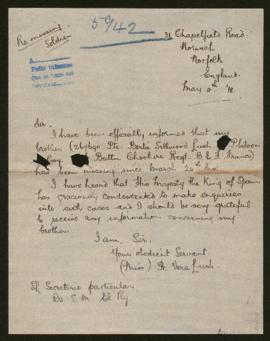 Re missing
Soldier
5942
31 Chapelfield Road
Norwich
Norfolk
England
May 11th 18.
Sir.
I have been officially informed that my
brother (267690 Pte. Bertie Sellwood Lush Platoon
Coy. Battn Cheshire Regt. B.E.F. France)
has been missing since March
I have heard that His Majesty the King of Spain
has graciously condescended to make enquiries
into such cases and I should be very grateful
to receive any information concerning my
brother.
I am, Sir.
Your obedient Servant
(Miss) H. Vera Lush
El Secretario particular
De S. M. el Rey